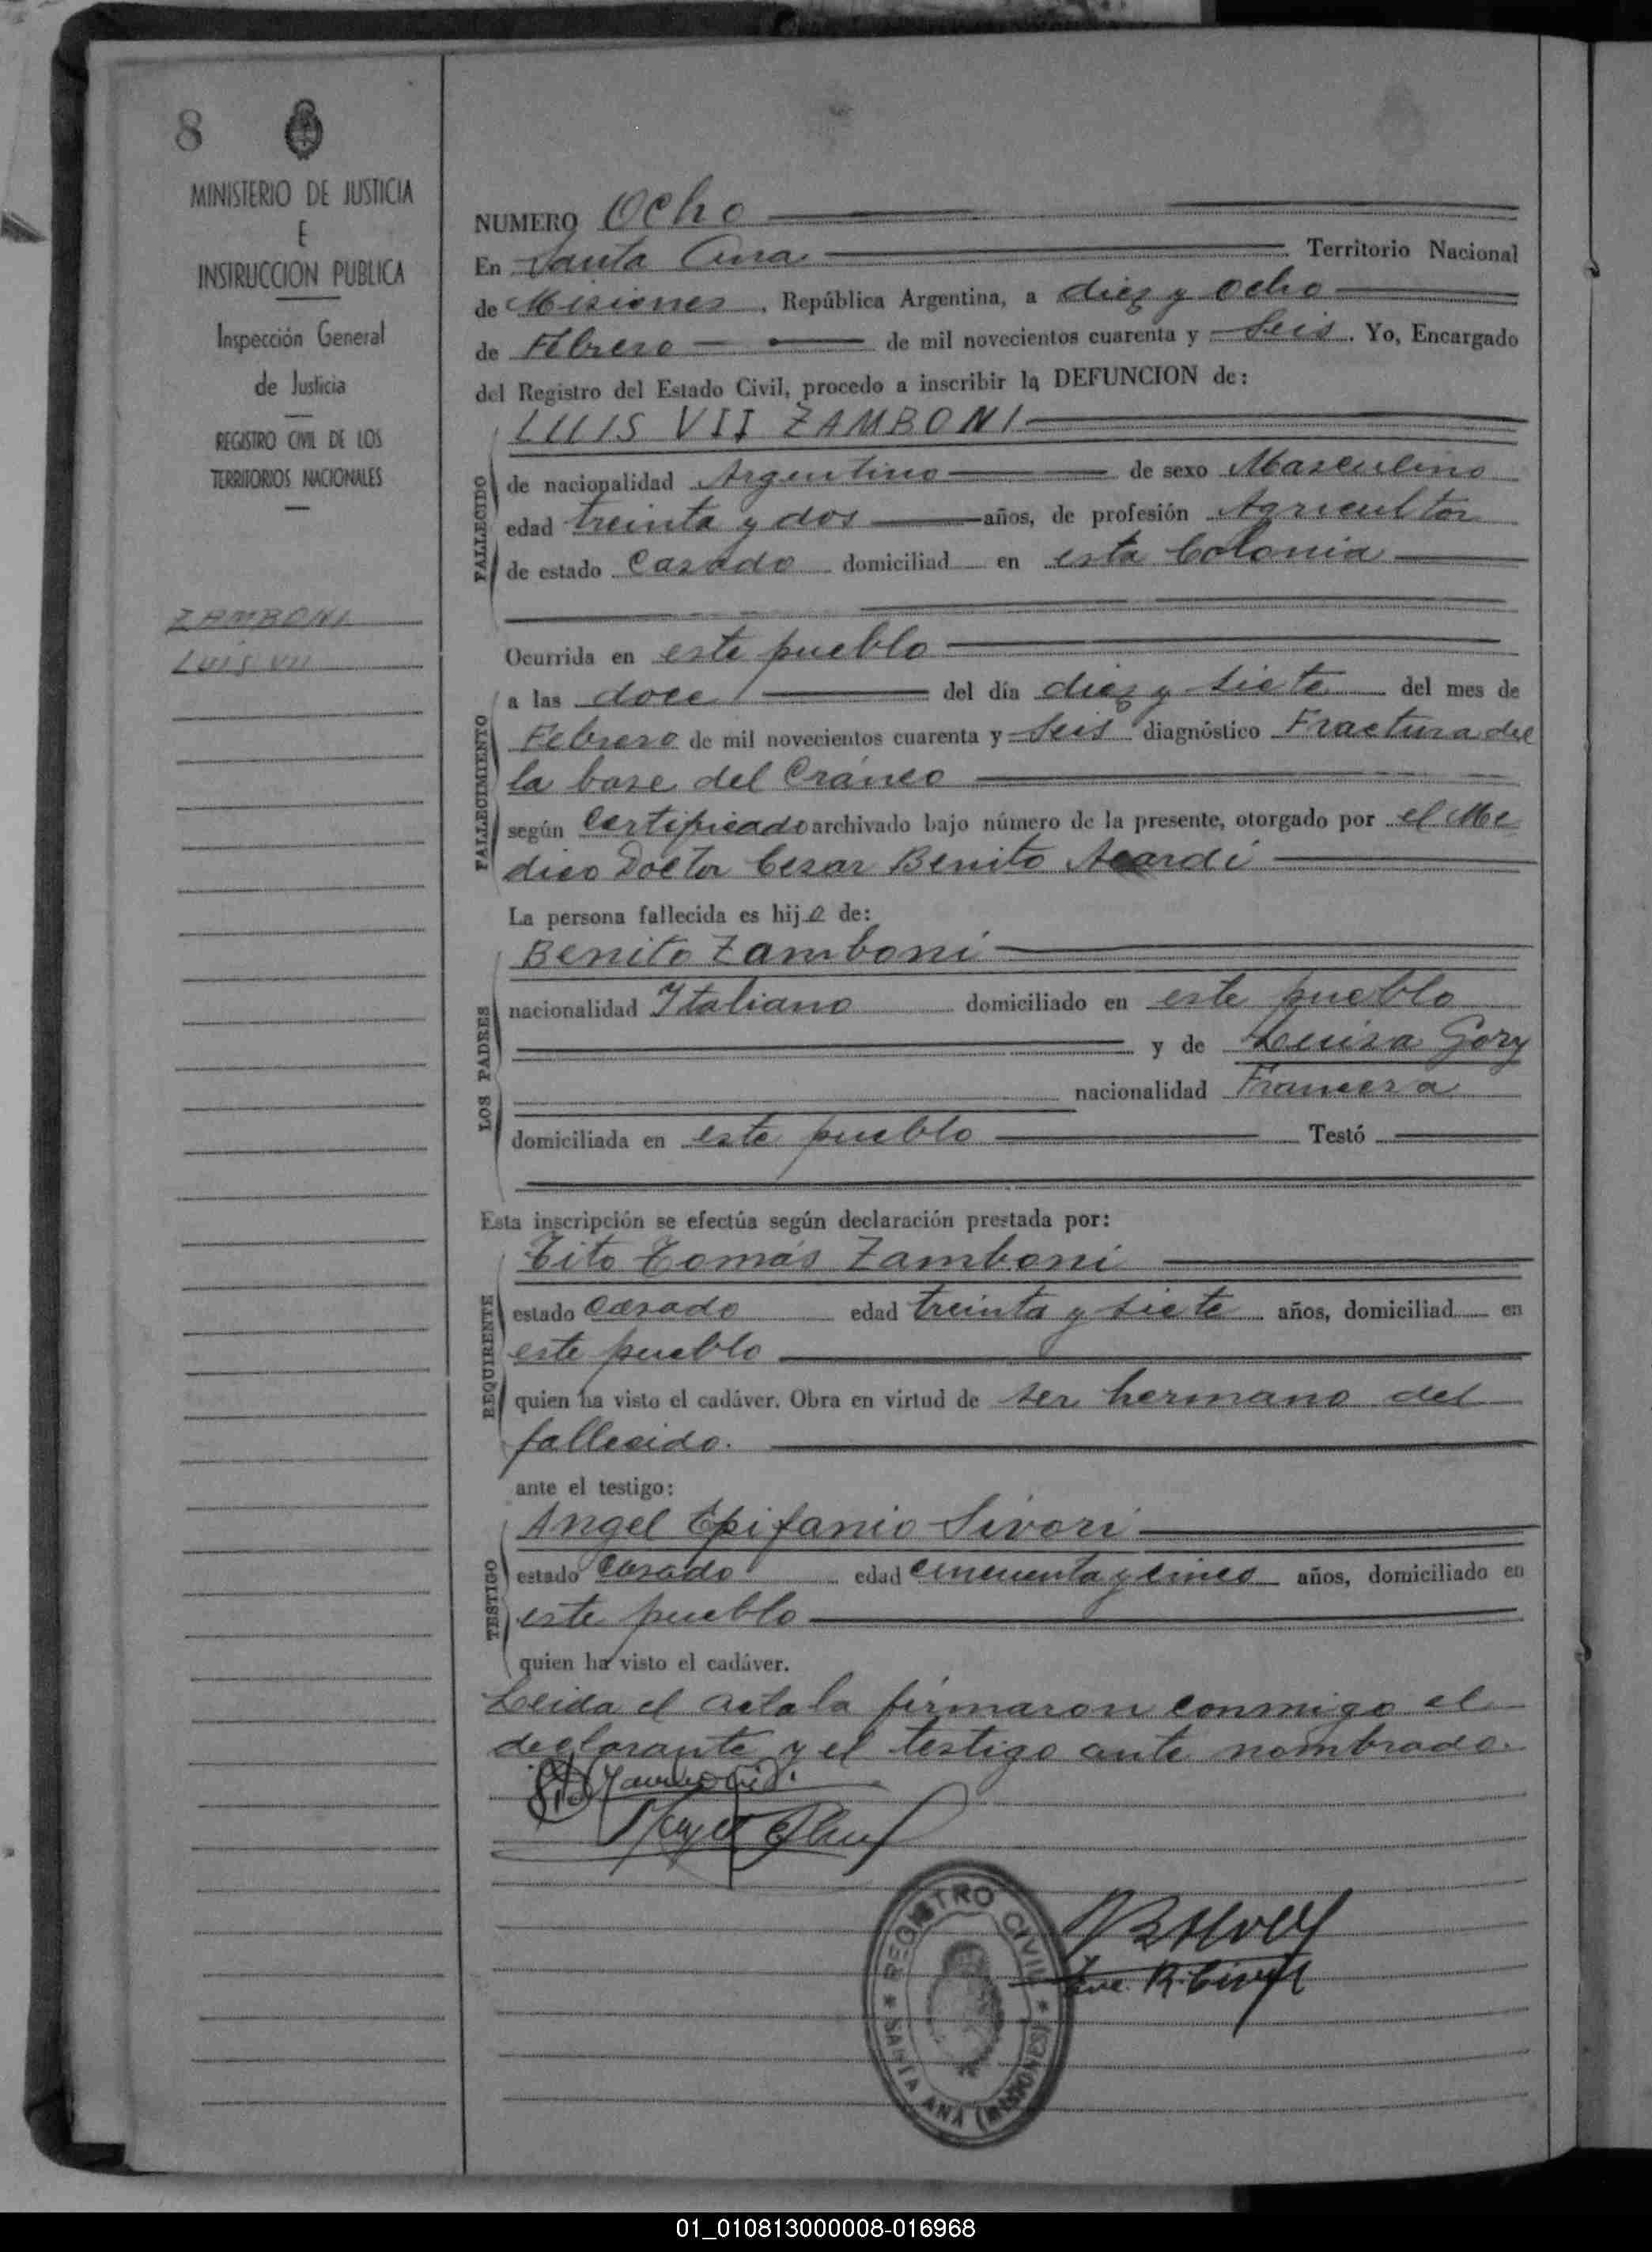 8
MINISTERIO DE JUSTICIA
E
INSTRUCCION PUBLICA
Inspección General
de Justicia
REGISTRO CIVIL DE LOS
TERRITORIOS NACIONALES
ZAMBONI
LUIS VII
NUMERO Ocho
En Santa Ana Territorio Nacional
de Misiones, República Argentina, a diez y ocho
de Febrero de mil novecientos cuarenta y Seis. Yo, Encargado
del Registro del Estado Civil, procedo a inscribir la DEFUNCION de:
LUIS VII ZAMBONI
FALLECIDO
de nacionalidad Argentino de sexo Masculino
edad treinta y dos años, de profesión Agricultor
de estado Casado domiciliad en esta Colonia
Ocurrida en este pueblo
FALLECIMIENTO
a las doce del día diez y siete del mes de
Febrero de mil novecientos cuarenta y Seis diagnóstico Fractura del
la base del Cráneo
según Certificado archivado bajo número de la presente, otorgado por el Me
dico Doctor Cesar Benito
La persona fallecida es hijo de:
Benito Zamboni
LOS PADRES
nacionalidad Italiano domiciliado en este pueblo
y de Luisa Gory
nacionalidad Francesa
domiciliada en este pueblo Testó
Esta inscripción se efectúa según declaración prestada por:
Tito Tomás Zamboni
REQUIRENTE
estado Casado edad treinta y siete años, domiciliad en
este pueblo
quien ha visto el cadáver. Obra en virtud de ser hermano del
fallecido.
ante el testigo:
Angel Epifanio Sívori
TESTIGO
estado Casado edad cincuenta y cinco años, domiciliado en
este pueblo
quien ha visto el cadáver.
Leida el acta la firmaron conmigo el
declarante y el testigo ante nombrado.
REGISTRO CIVIL
SANTA ANA (MISIONES)
01_010813000008-016968